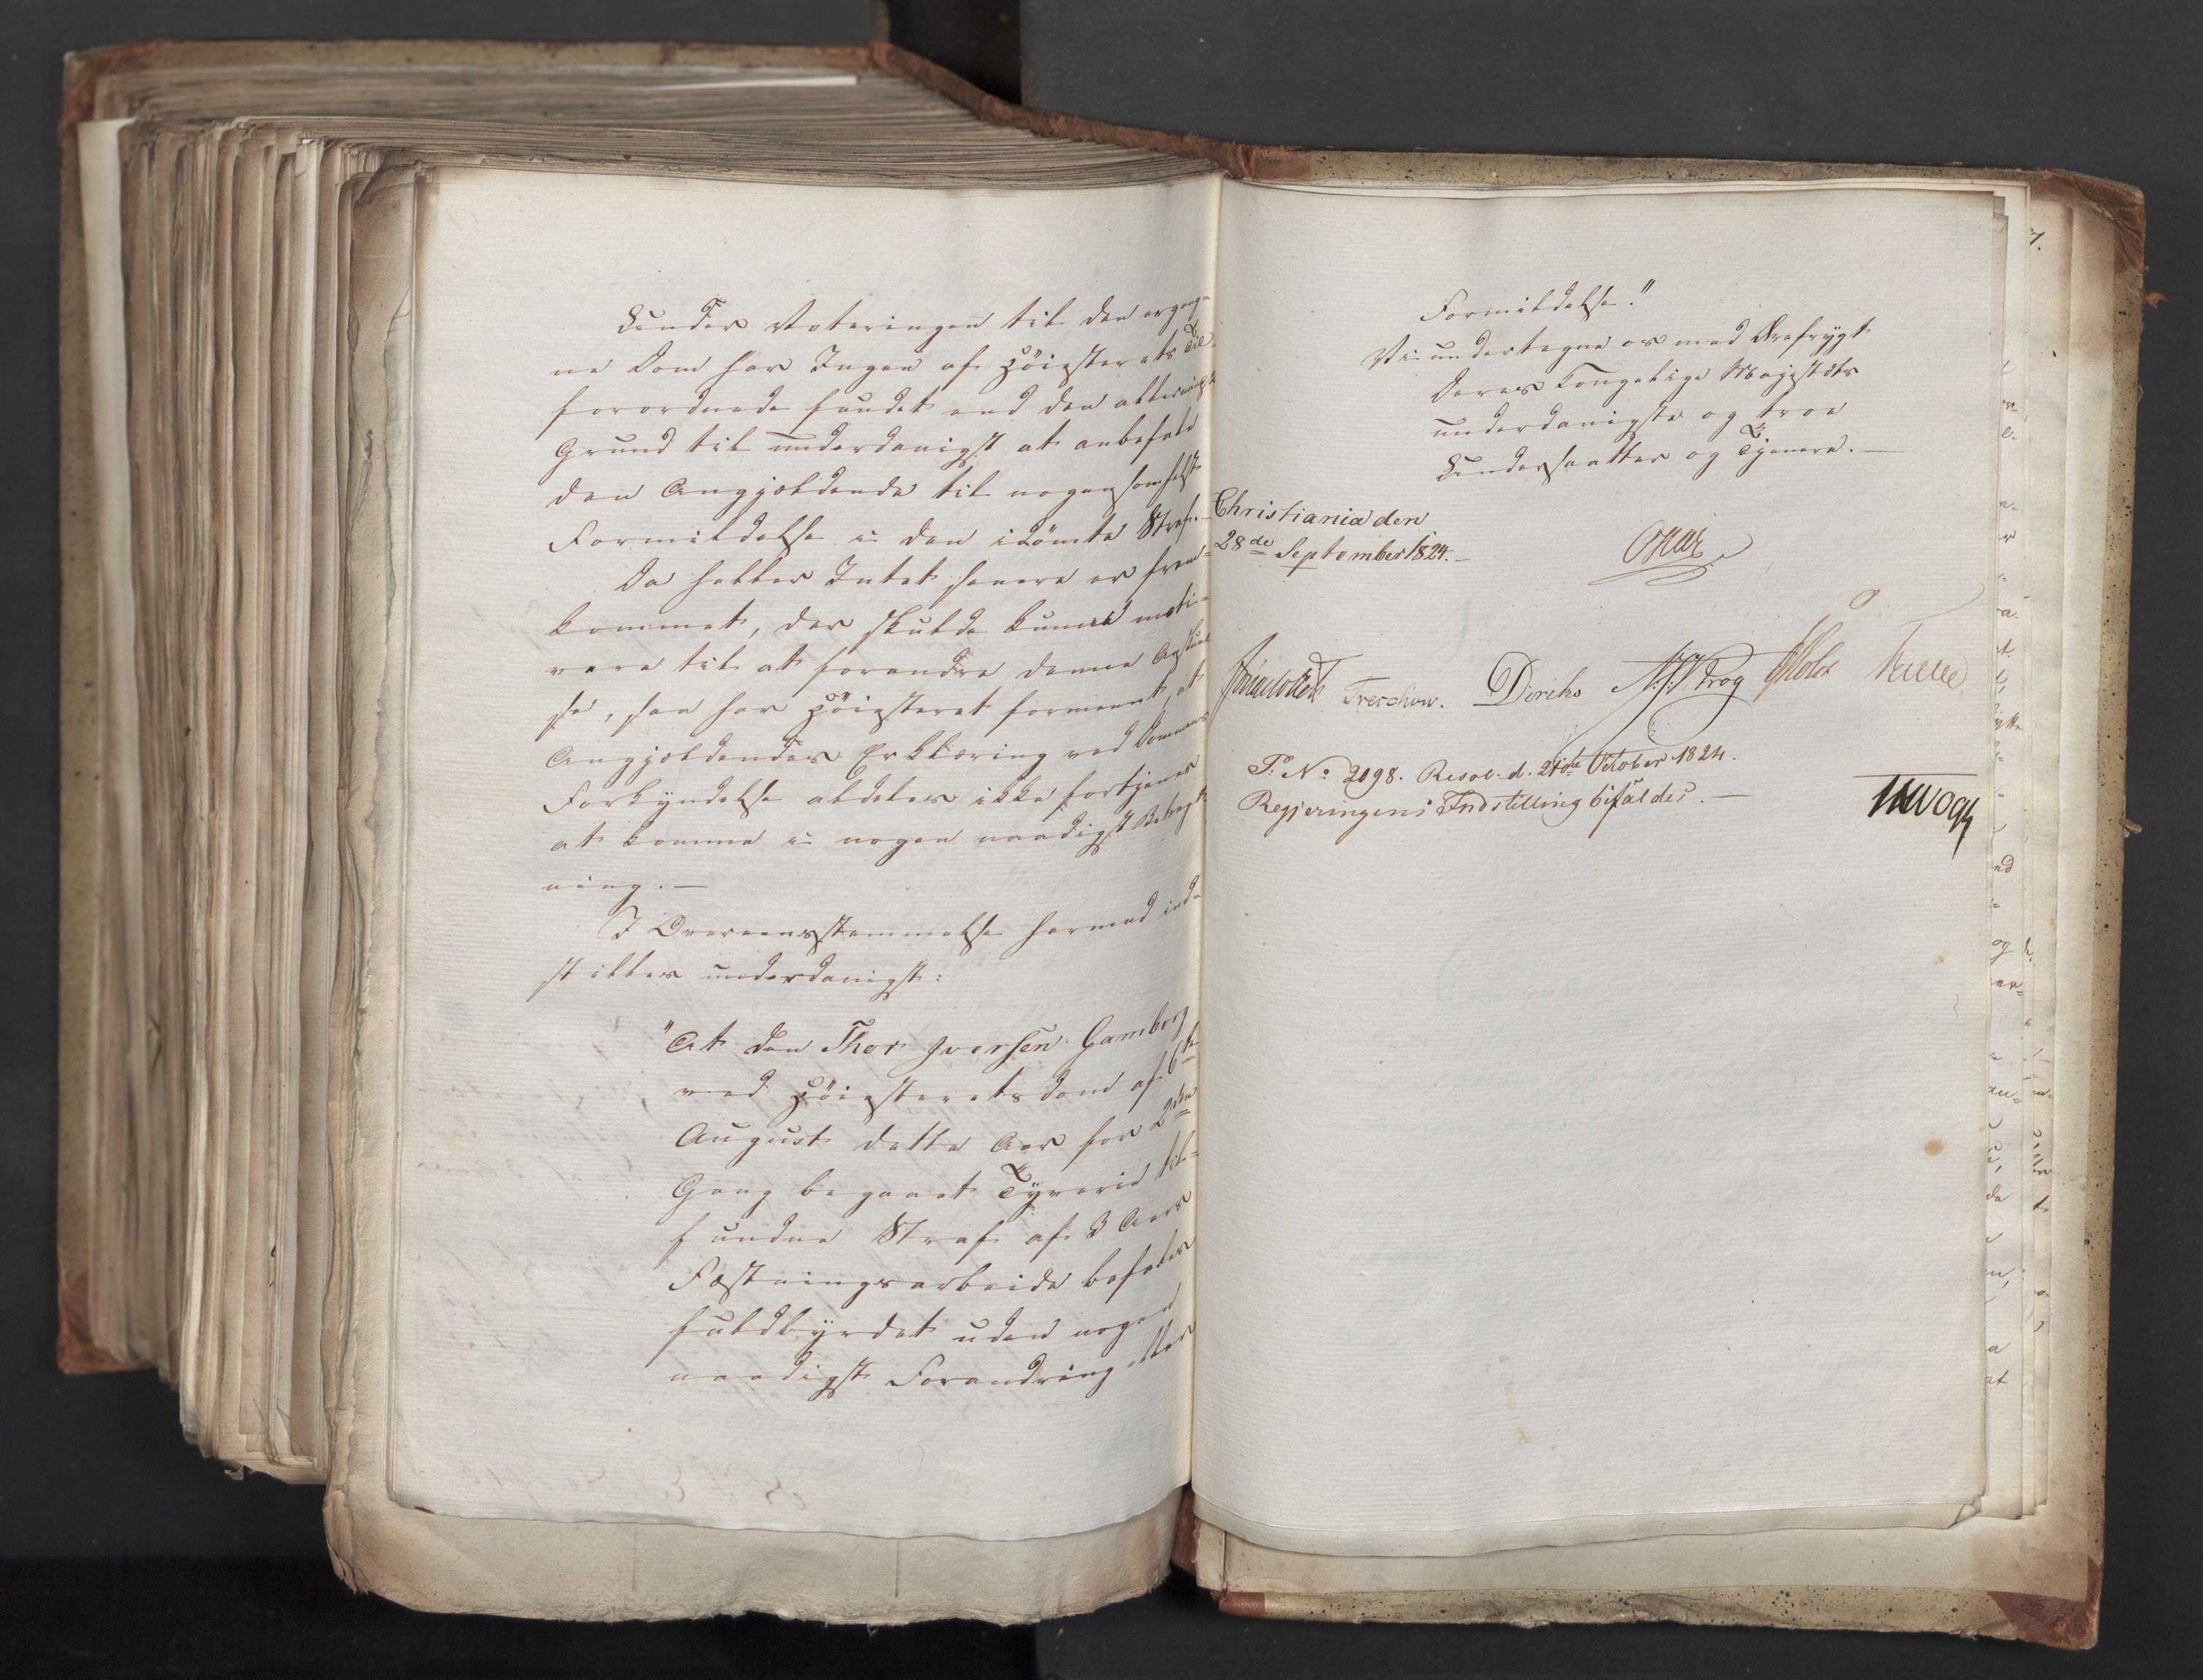 Under Voteringen til den ergang-
ne Dom har Ingen af Höiesterets Til-
forordnede fundet end den allerringeste
Grund til underdanigst at anbefale
den Angjældende til nogensomhelst
Formildelse i den idömte Straf.-
Da heller Intet senere er frem-
kommet, der skulde kunne moti-
vere til at forandre denne Anskuel-
se, saa har Höiesteret formeent, at
Angjældendes Erklæring ved Dommens
Forkyndelse aldeles ikke fortjener
at komme i nogen naadigst Betragt-
ning.—
I Overeensstemmelse hermed ind-
stilles underdanigst:
"At den Thor Iversen Gamborg
ved Höiesteretsdom af 6te
August dette Aar for 2den
Gang begaaet Tyverie til-
fundne Straf af 3 Aars
Fæstningsarbeide befales
fuldbyrdet uden nogen
naadigst Forandring eller
Formildelse."
Vi undertegne os med Ærefrygt
Deres Kongelige Majestæts
underdanigste og troe
Undersaatter og Tjenere.—
Christiania den
28de September 1824.-
Oscar
Treschow. Diriks Krog Holst
P: No 2098. Resol. d. 21de October 1824.
Regjeringens Indstilling bifaldes.—